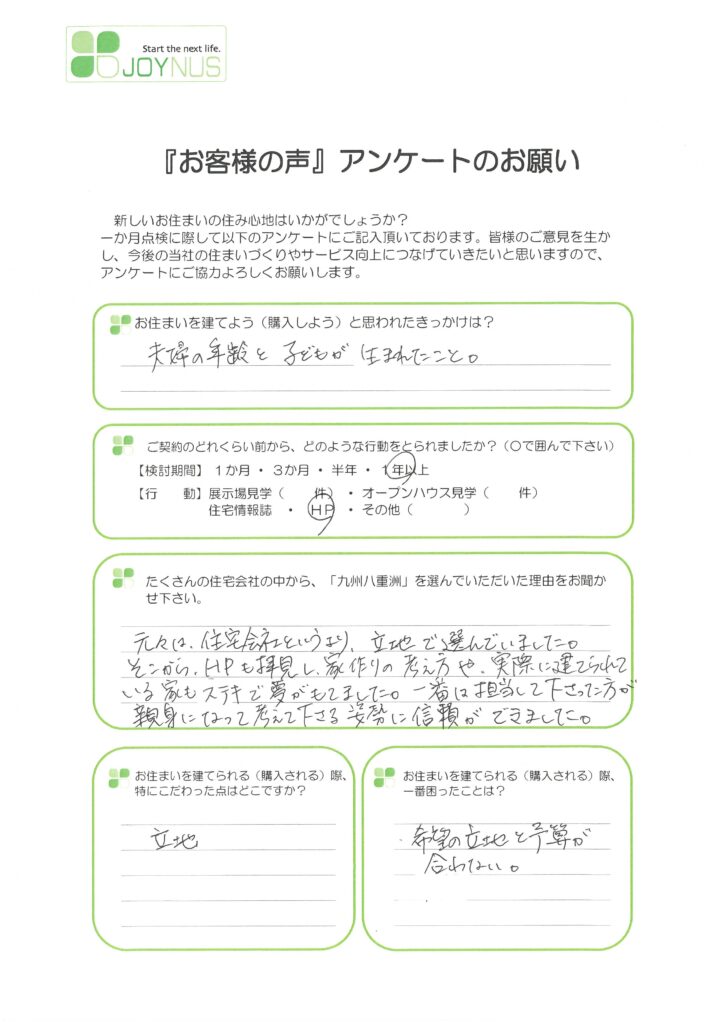 Start the next life.
JOYNUS
『お客様の声』アンケートのお願い
新しいお住まいの住み心地はいかがでしょうか?
一か月点検に際して以下のアンケートにご記入頂いております。皆様のご意見を生か
し、今後の当社の住まいづくりやサービス向上につなげていきたいと思いますので、
アンケートにご協力よろしくお願いします。
お住まいを建てよう（購入しよう）と思われたきっかけは？
夫婦の年齢と子どもが生まれたこと。
ご契約のどれくらい前から、どのような行動をとられましたか？（〇で囲んで下さい）
【検討期間】 1か月 ・ 3か月 ・ 半年 ・ 1年以上
【行　　動】 展示場見学（　　件） ・ オープンハウス見学（　　件）
住宅情報誌 ・ HP ・ その他（　　　　）
たくさんの住宅会社の中から、「九州八重洲」を選んでいただいた理由をお聞か
せ下さい。
元々は、住宅会社というより、立地で選んでいました。
そこから、HPも拝見し、家作りの考え方や、実際に建てられて
いる家もステキで夢がもてました。一番は担当して下さった方が
親身になって考えて下さる姿勢に信頼ができました。
お住まいを建てられる（購入される）際、
特にこだわった点はどこですか？
立地
お住まいを建てられる（購入される）際、
一番困ったことは？
・希望の立地と予算が
合わない。